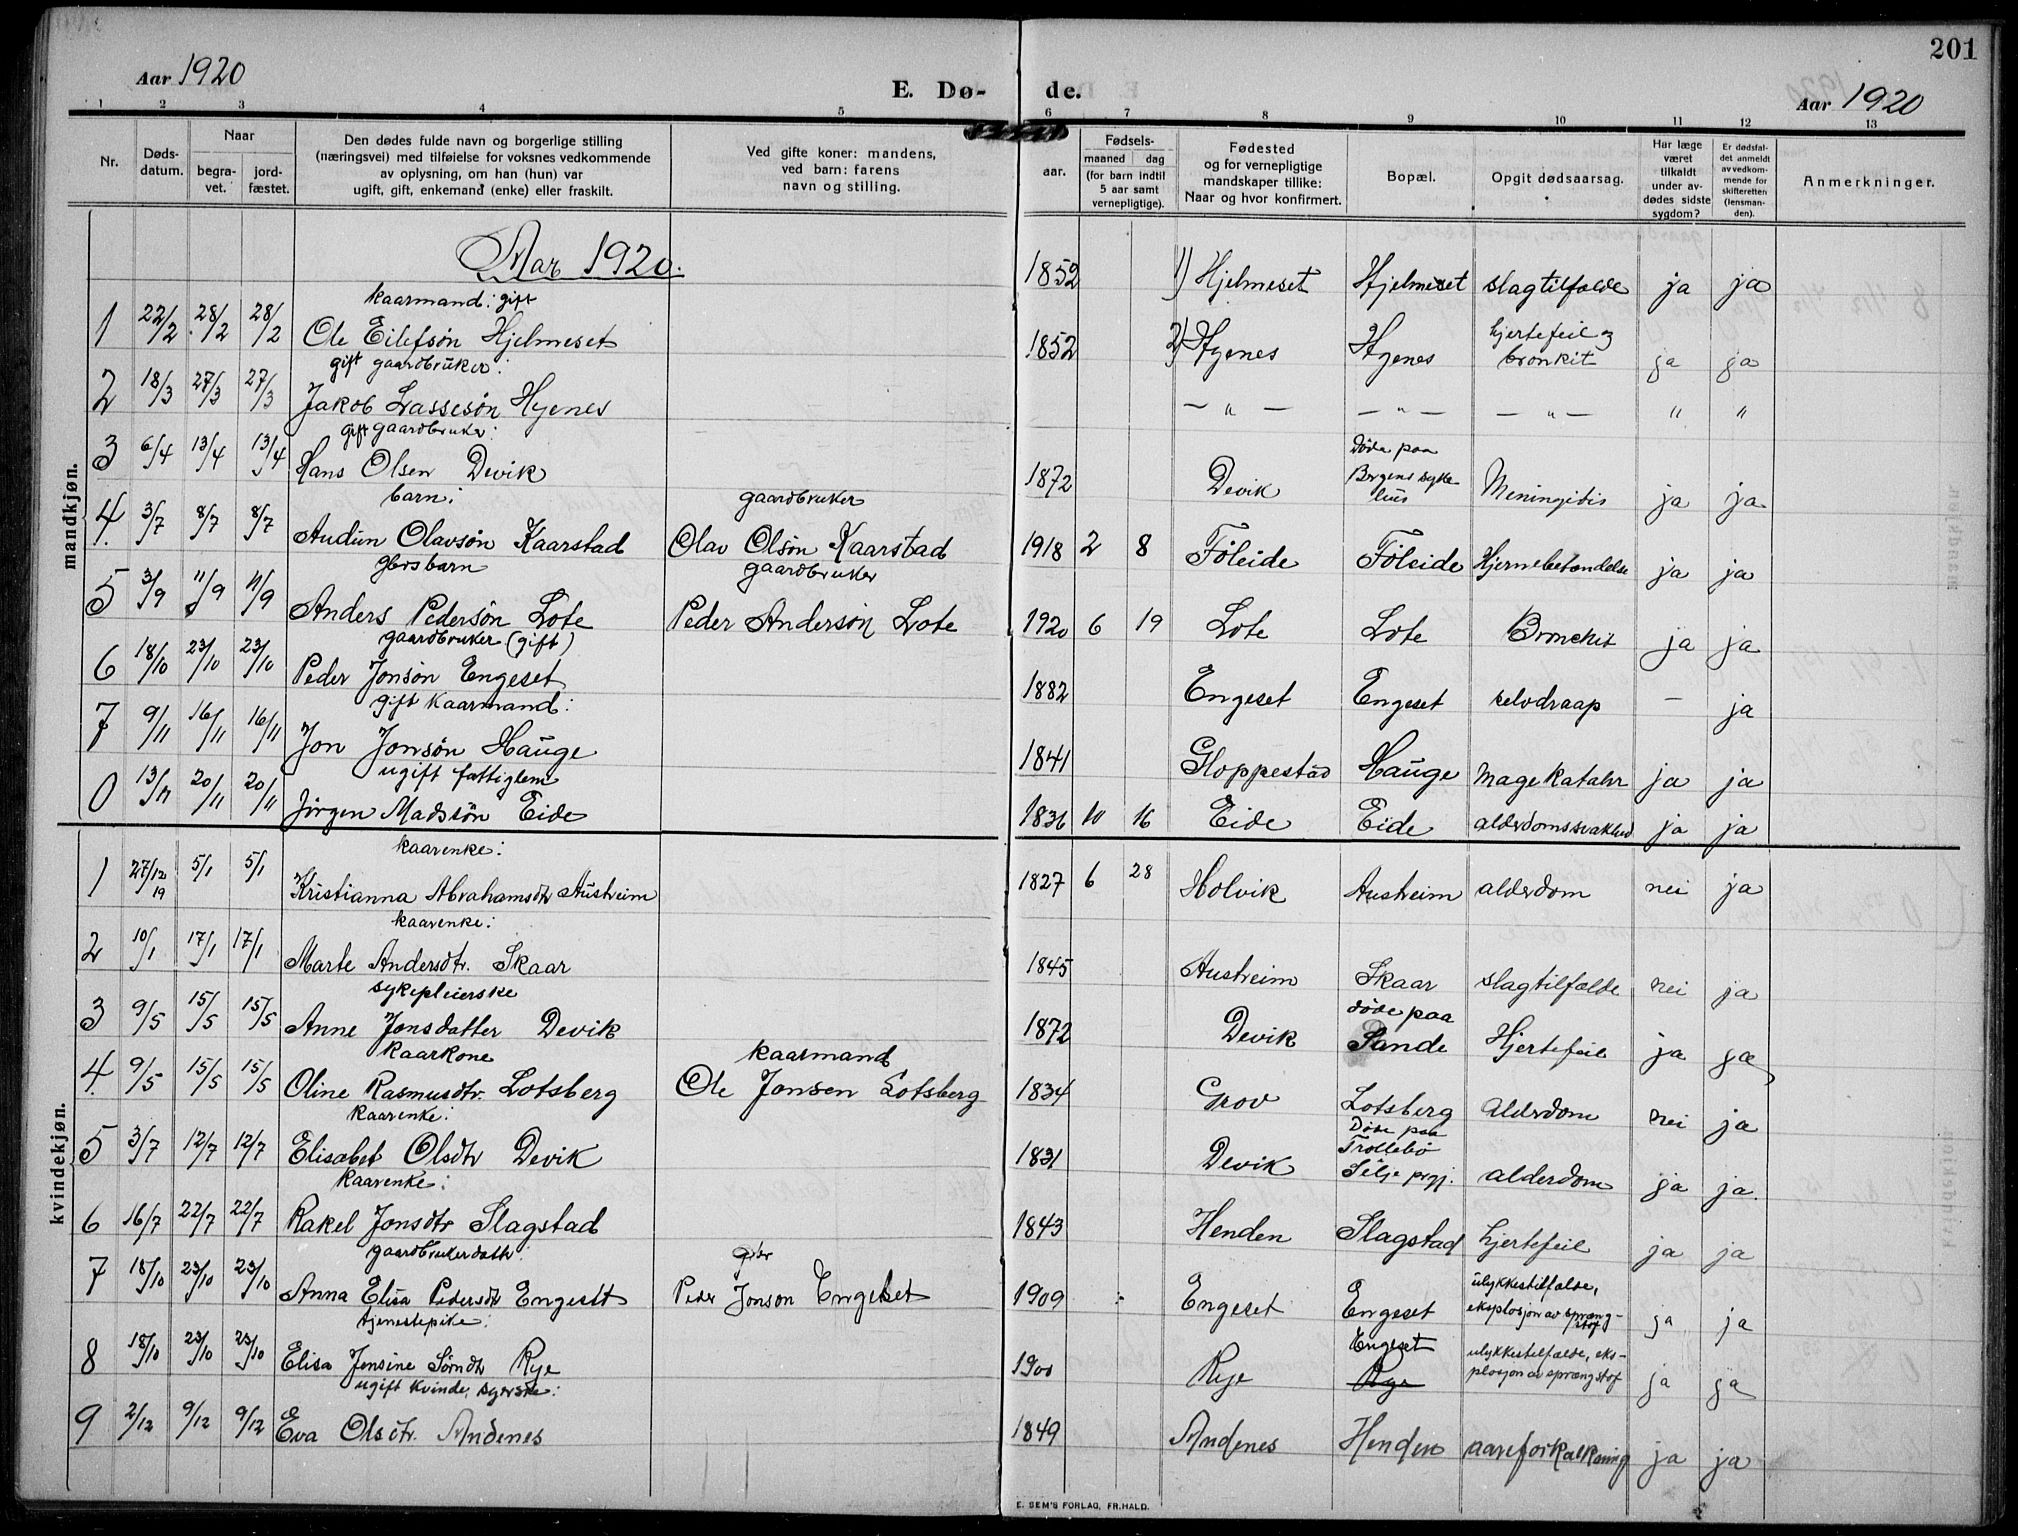 Aar 1920
E. Dø-
de.
201
Aar 1920
1 2 3 4 5 6 7 8 9 10 11 12 13
Nr.
Døds-
datum.
Naar
begra-
vet.
jord-
fæstet.
Den dødes fulde navn og borgerlige stilling
(næringsvei) med tilføielse for voksnes vedkommende
av oplysning, om han (hun) var
ugift, gift, enkemand (enke) eller fraskilt.
Ved gifte koner: mandens,
ved barn: farens
navn og stilling.
aar.
Fødsels-
maaned dag
(for barn indtil
5 aar samt
vernepligtige).
Fødested
og for vernepligtige
mandskaper tillike:
Naar og hvor konfirmert.
Bopæl.
Opgit dødsaarsag.
Har læge
været
tilkaldt
under av-
dødes sidste
sygdom?
Er dødsfal-
det anmeldt
av vedkom-
mende for
skifteretten
(lensman-
den).
Anmerkninger.
mandkjøn.
Aar 1920.
kaarmand: gift
1 22/2 28/2 28/2 Ole Eilefsön Hjelmeset 1852 1) Hjelmeset Hjelmeset slagtilfælde ja ja
gift gaardbruker:
hjertefeil og
2 18/3 27/3 27/3 Jakob Lassesön Hyenes 1852 2) Hyenes Hyenes bronkit ja ja
— " — — " — — " — " "
gift gaardbruker:
Döde paa
Bergens syke
hus
3 6/4 13/4 13/4 Hans Olsen Devik 1872 Devik Meningitis ja ja
barn: gaardbruker
4. 3/7 8/7 8/7 Audun Olavsön Kaarstad Olav Olsön Kaarstad 1918 2 8 Föleide Föleide Hjernebetændelse ja ja
gbrs barn gaardbruker
5 3/9 11/9 11/9 Anders Pedersön Lote Peder Andersön Lote 1920 6 19 Lote Lote Bronchit ja ja
gaardbruker (gift)
6 18/10 23/10 23/10 Peder Jonsön Engeset 1882 Engeset Engeset selvdraap — ja
gift kaarmand:
7 9/11 16/11 16/11 Jon Jonsön Hauge 1841 Gloppestad Hauge magekatahr ja ja
ugift fattiglem
0 13/11 20/11 20/11 Jörgen Madssön Eide 1836 10 16 Eide Eide alderdomssvakhed ja ja
kvindekjøn.
kaarenke:
1 27/12 19 5/1 5/1 Kristianna Abrahamsdtr Austreim 1827 6 28 Holvik Austreim alderdom nei ja
kaarenke:
2 10/1 17/1 17/1 Marte Andersdtr. Skaar 1845 Austreim Skaar slagtilfælde nei ja
sykepleierske
döde paa
3 9/5 15/5 15/5 Anne Jonsdatter Devik 1872 Devik Sande Hjertefeil ja ja
kaarkone kaarmand
4. 9/5 15/5 15/5 Oline Rasmusdtr. Lotsberg Ole Jonsen Lotsberg 1834 Grov Lotsberg Alderdom nei ja
kaarenke:
Döde paa
Trollebö
Selje prgj.
5 3/7 12/7 12/7 Elisabet Olsdtr Devik 1831 Devik alderdom ja ja
kaarenke:
6 16/7 22/7 22/7 Rakel Jonsdtr Slagstad 1843 Henden Slagstad hjertefeil ja ja
gaardbrukerdattr: gbr
ulykkestilfælde,
eksplosjon av spræng-
stof
7 18/10 23/10 23/10 Anna Elisa Pedersdtr Engeset Peder Jonson Engeset 1909 Engeset Engeset ja ja
tjenestepike:
Engeset
ulykkestilfælde, eks-
plosjon av sprængstof
8 18/10 23/10 23/10 Elisa Jensine Sörndtr Rye 1900 Rye Rye ja ja
ugift kvinde, syerske:
9 2/12 9/12 9/12 Eva Olsdtr. Andenes 1849 Andenes Henden aareforkalkning ja ja
E. SEM'S FORLAG, FR.HALD.